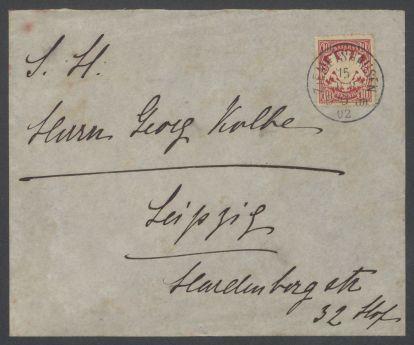 S. H.
Herrn Georg Kolbe
Leipzig
Hardenbergstr
32 Hof
10 10
15
02